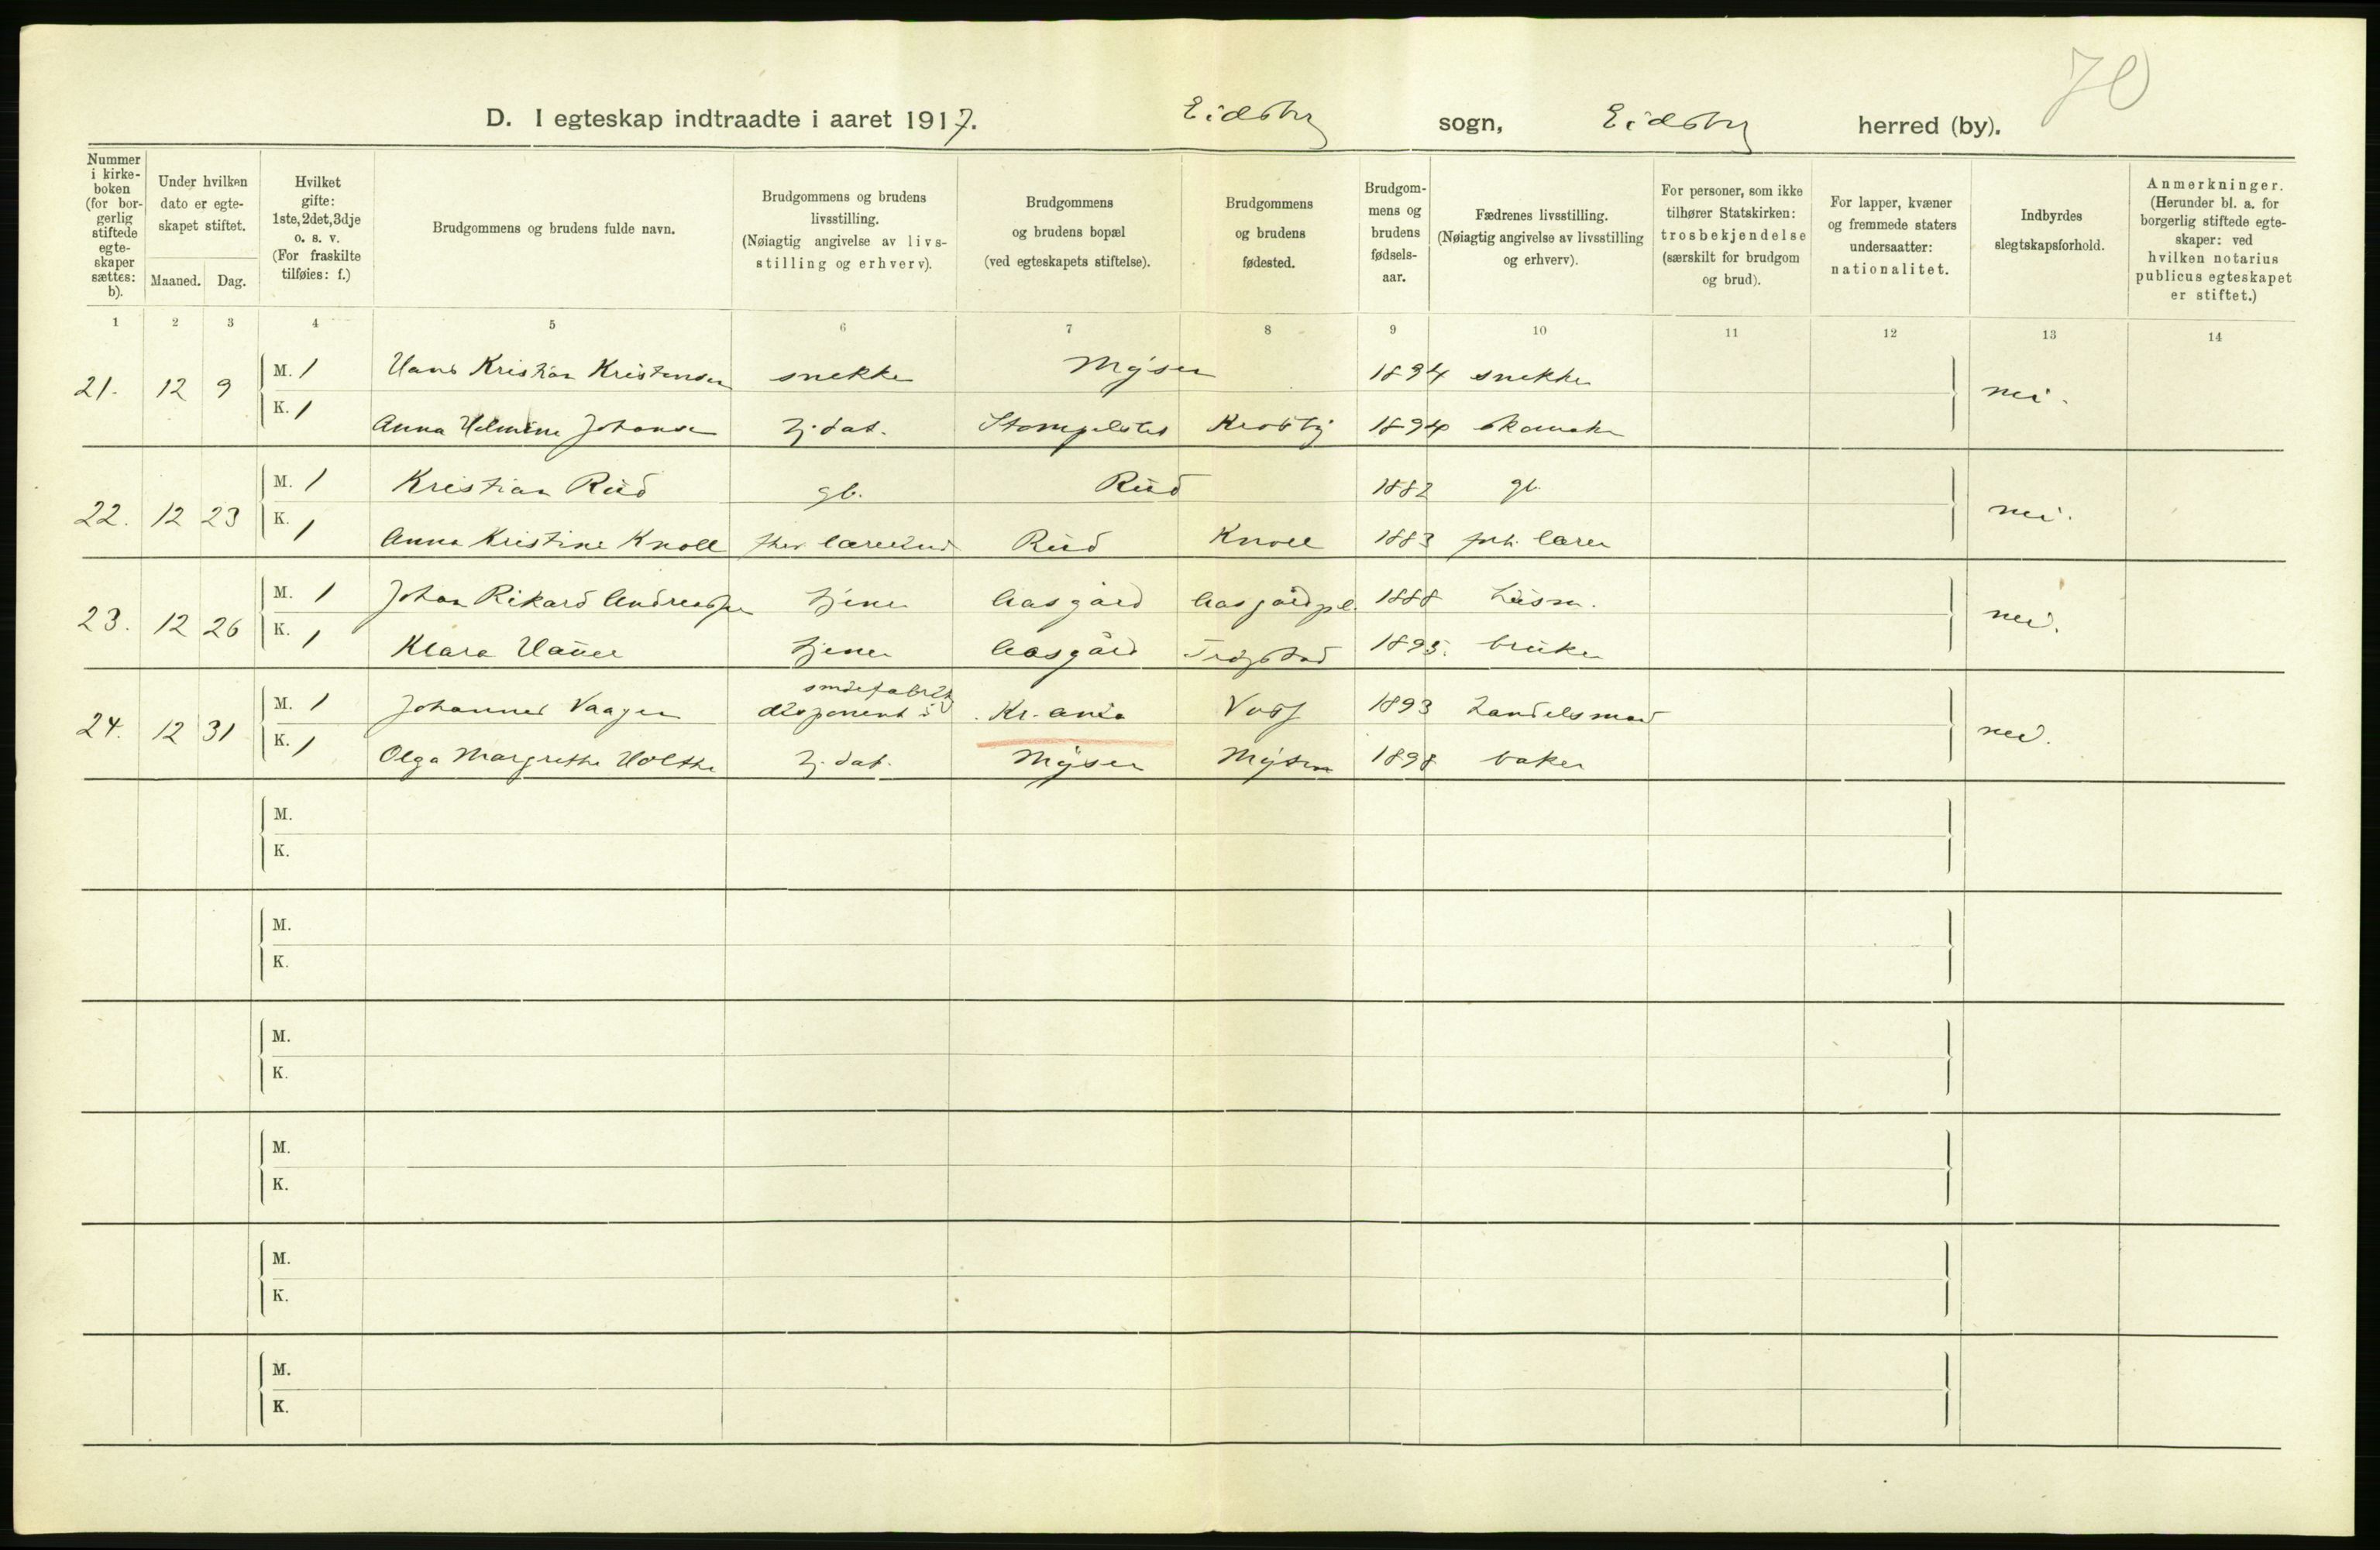 70
D. I egteskap indtraadte i aaret 1917. Eidsby sogn, Eidsby herred (by).
Nummer i kirke- boken (for bor- gerlig stiftede egte- skaper sættes: b).
Under hvilken dato er egte- skapet stiftet.
Maaned. Dag.
Hvilket gifte: 1ste, 2det, 3dje o. s. v. (For fraskilte tilføies: f.)
Brudgommens og brudens fulde navn.
Brudgommens og brudens livsstilling. (Nøiagtig angivelse av livs- stilling og erhverv).
Brudgommens og brudens bopæl (ved egteskapets stiftelse).
Brudgommens og brudens fødested.
Brudgom- mens og brudens fødsels- aar.
Fædrenes livsstilling. (Nøiagtig angivelse av livsstilling og erhverv).
For personer, som ikke tilhører Statskirken: trosbekjendelse (særskilt for brudgom og brud).
For lapper, kvæner og fremmede staters undersaatter: nationalitet.
Indbyrdes slegtskapsforhold.
Anmerkninger. (Herunder bl. a. for borgerlig stiftede egte- skaper: ved hvilken notarius publicus egteskapet er stiftet.)
1 2 3 4 5 6 7 8 9 10 11 12 13 14
21. 12 9 M. 1 Hans Kristian Kristensen snekker Mysen 1894 snekker nei.
K. 1 Anna Helmine Johansen Hj. dat. 1894
22. 12 23 M. 1 Kristian Rud gb. Rud 1882 gb. nei.
K. 1 Anna Kristine Knoll lærerinde Rud Knoll 1883 lærer
23. 12 26 M. 1 Johan Rikard Andreassen tjener Aasgård Aasgårdpl. 1888 husm. nei.
K. 1 Klara tjener Aasgård Trøgstad 1895. bruker
24. 12 31 M. 1 Johannes Vaagen disponent i smørfabrik Kr.ania Voss 1893 handelsmand nei.
K. 1 Olga Margrethe Holthe Hj. dat. Mysen Mysen 1898 baker
M.
K.
M.
K.
M.
K.
M.
K.
M.
K.
M.
K.